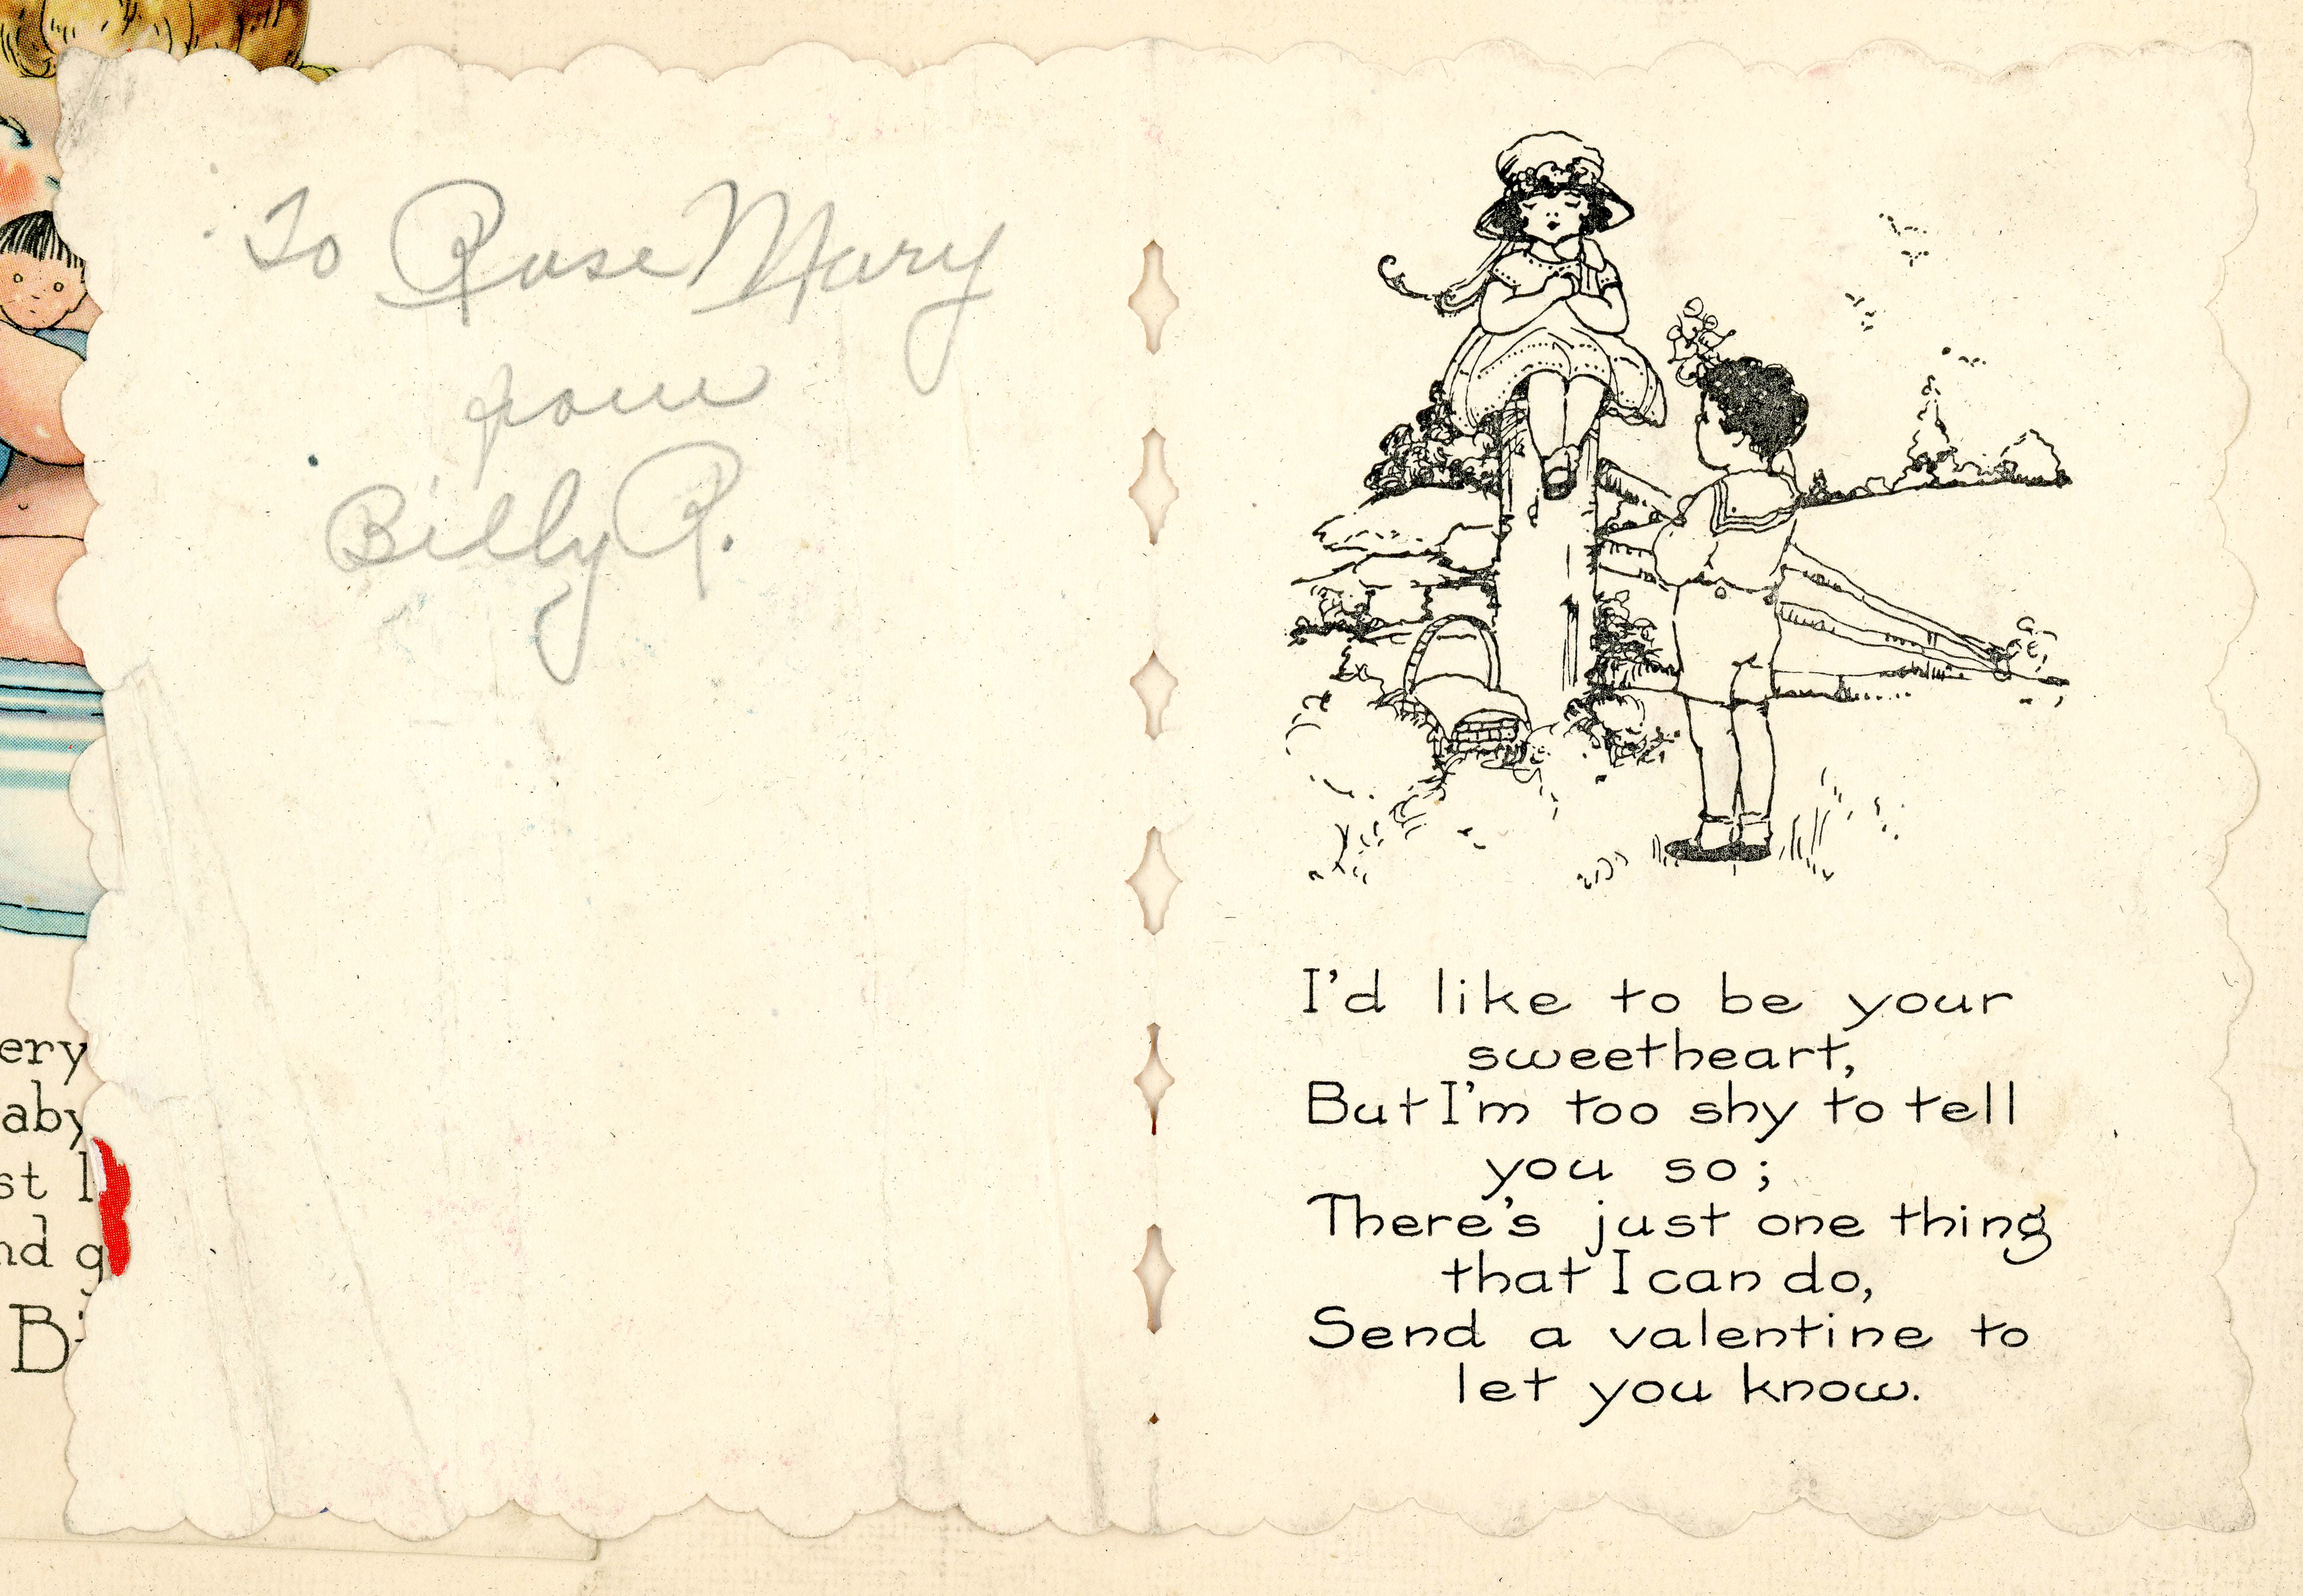 To Rose Mary
from
Billy R.
I'd like to be your
sweetheart,
But I'm too shy to tell
you so;
There's just one thing
that I can do,
Send a valentine to
let you know.
ery
aby
st l
nd g
B